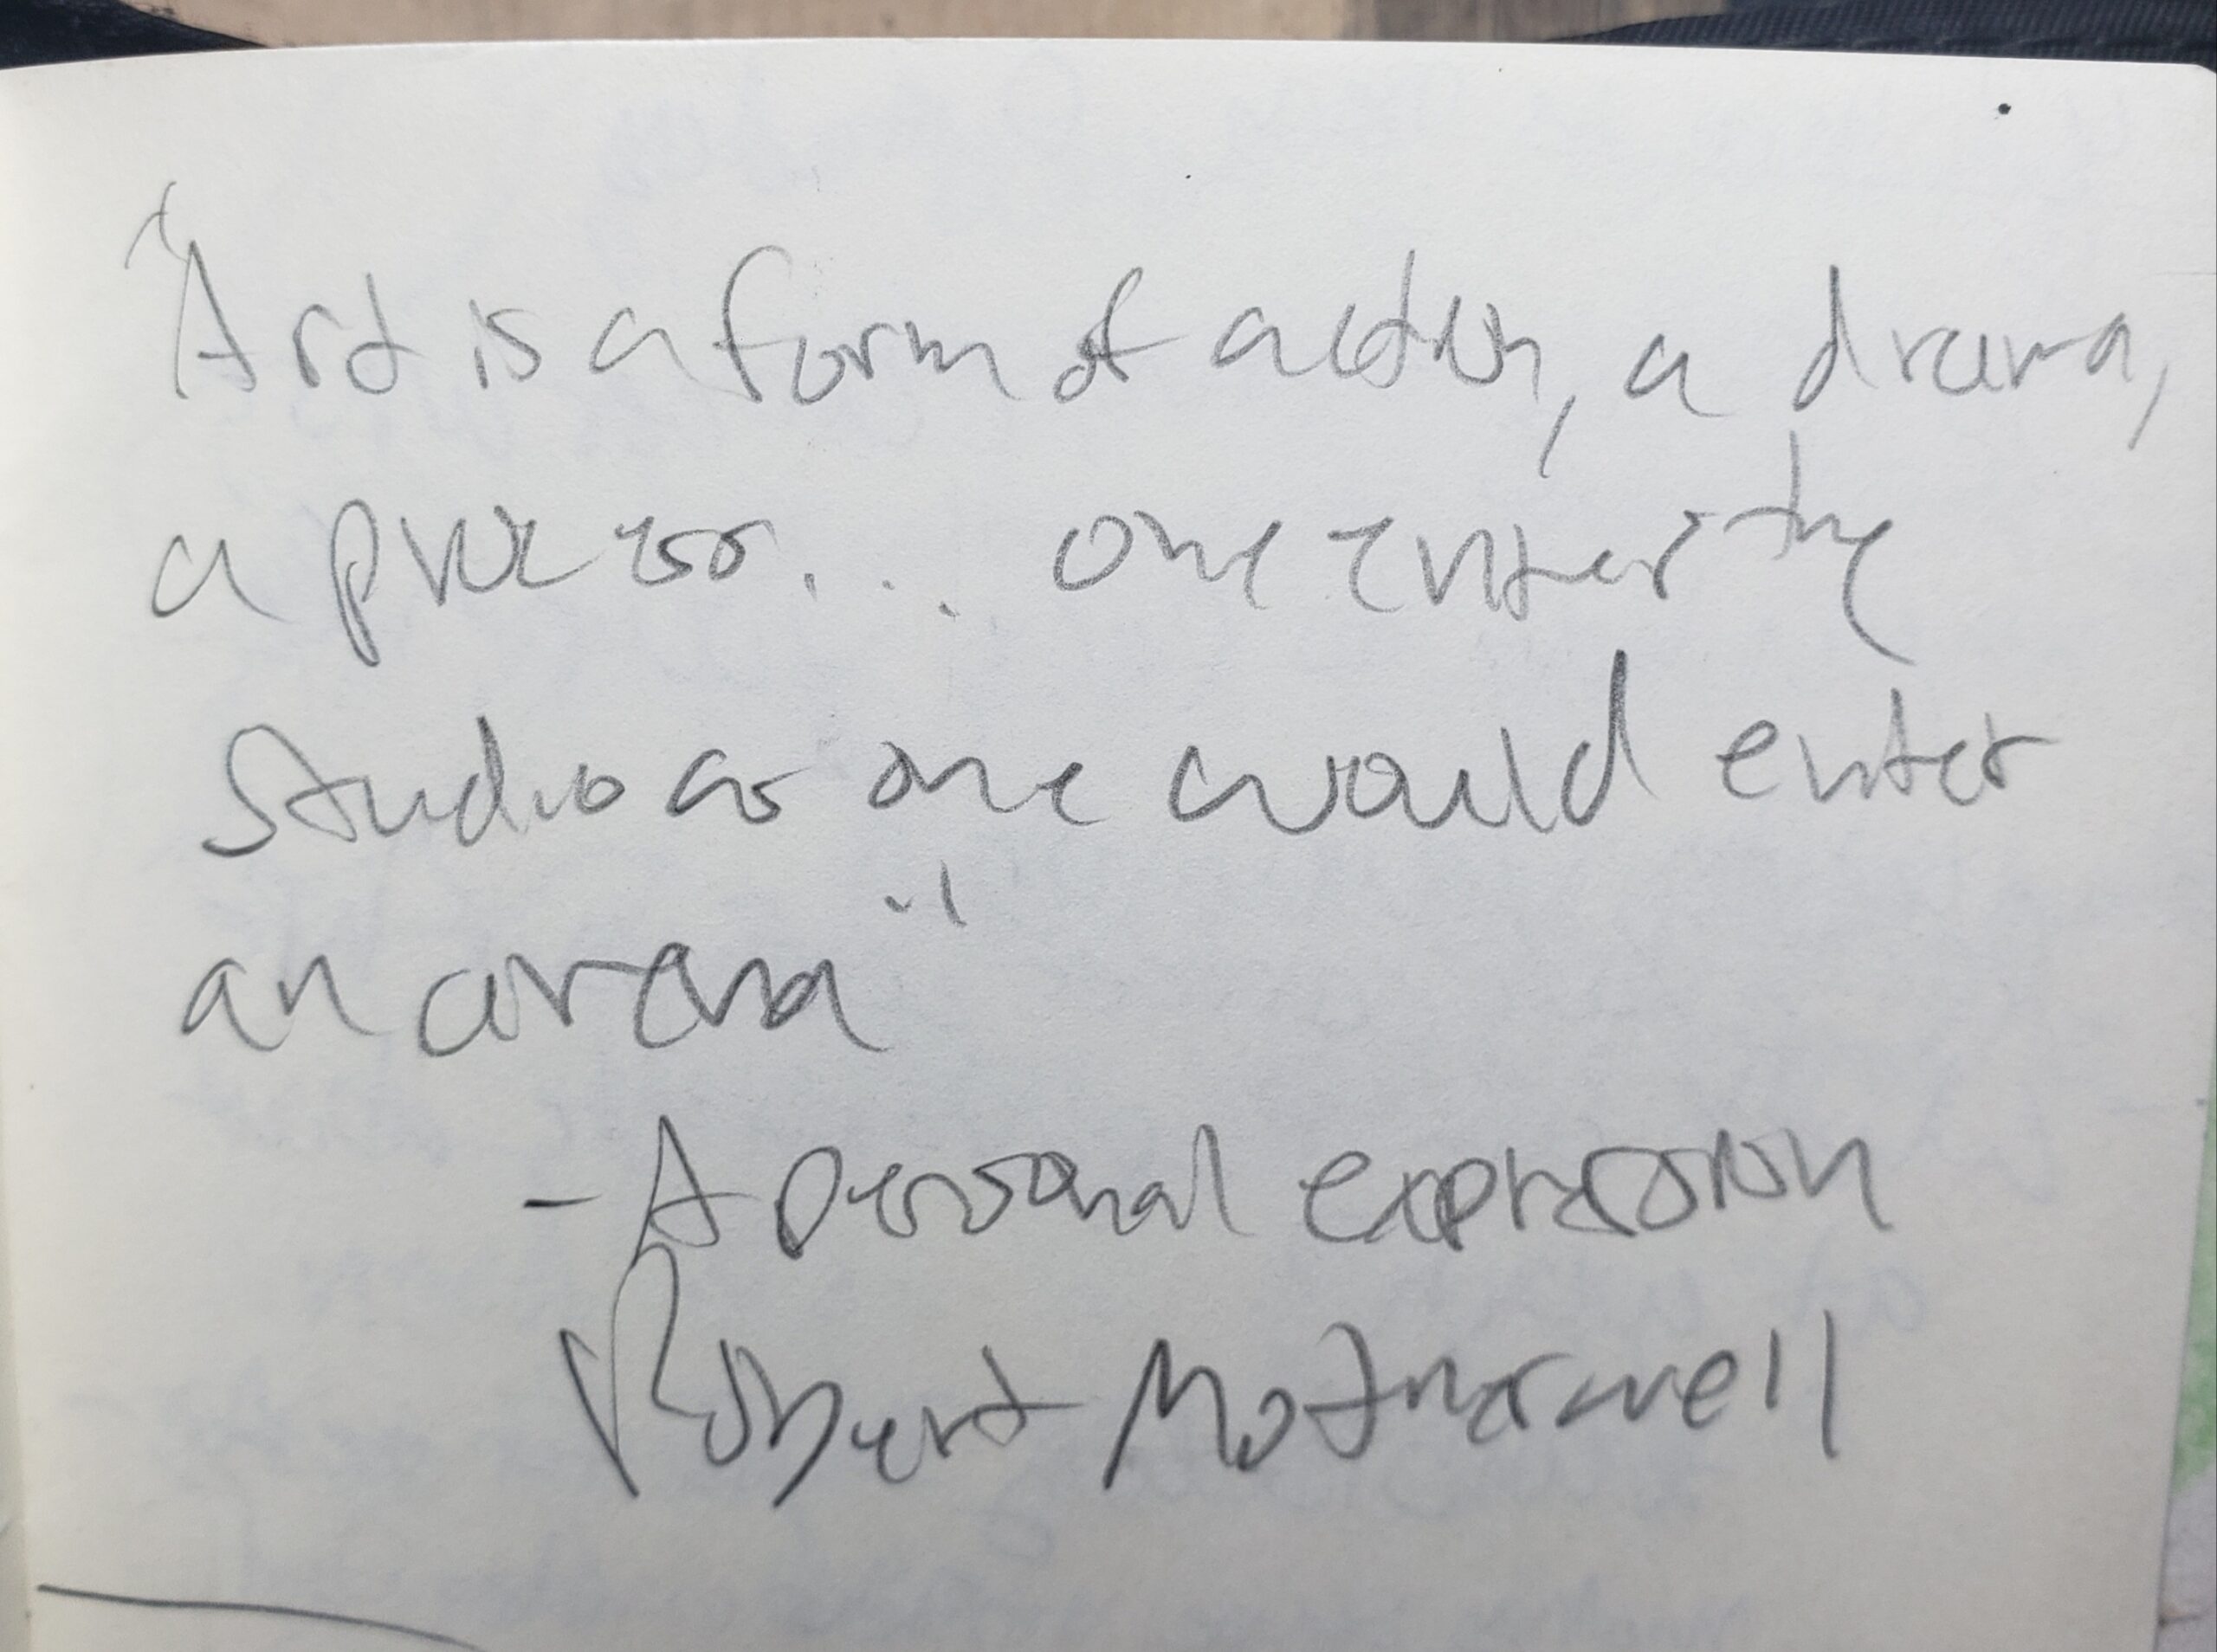 "Art is a form of action, a drama,
a process... one enters the
studio as one would enter
an arena"
- A personal expression
Robert Motherwell